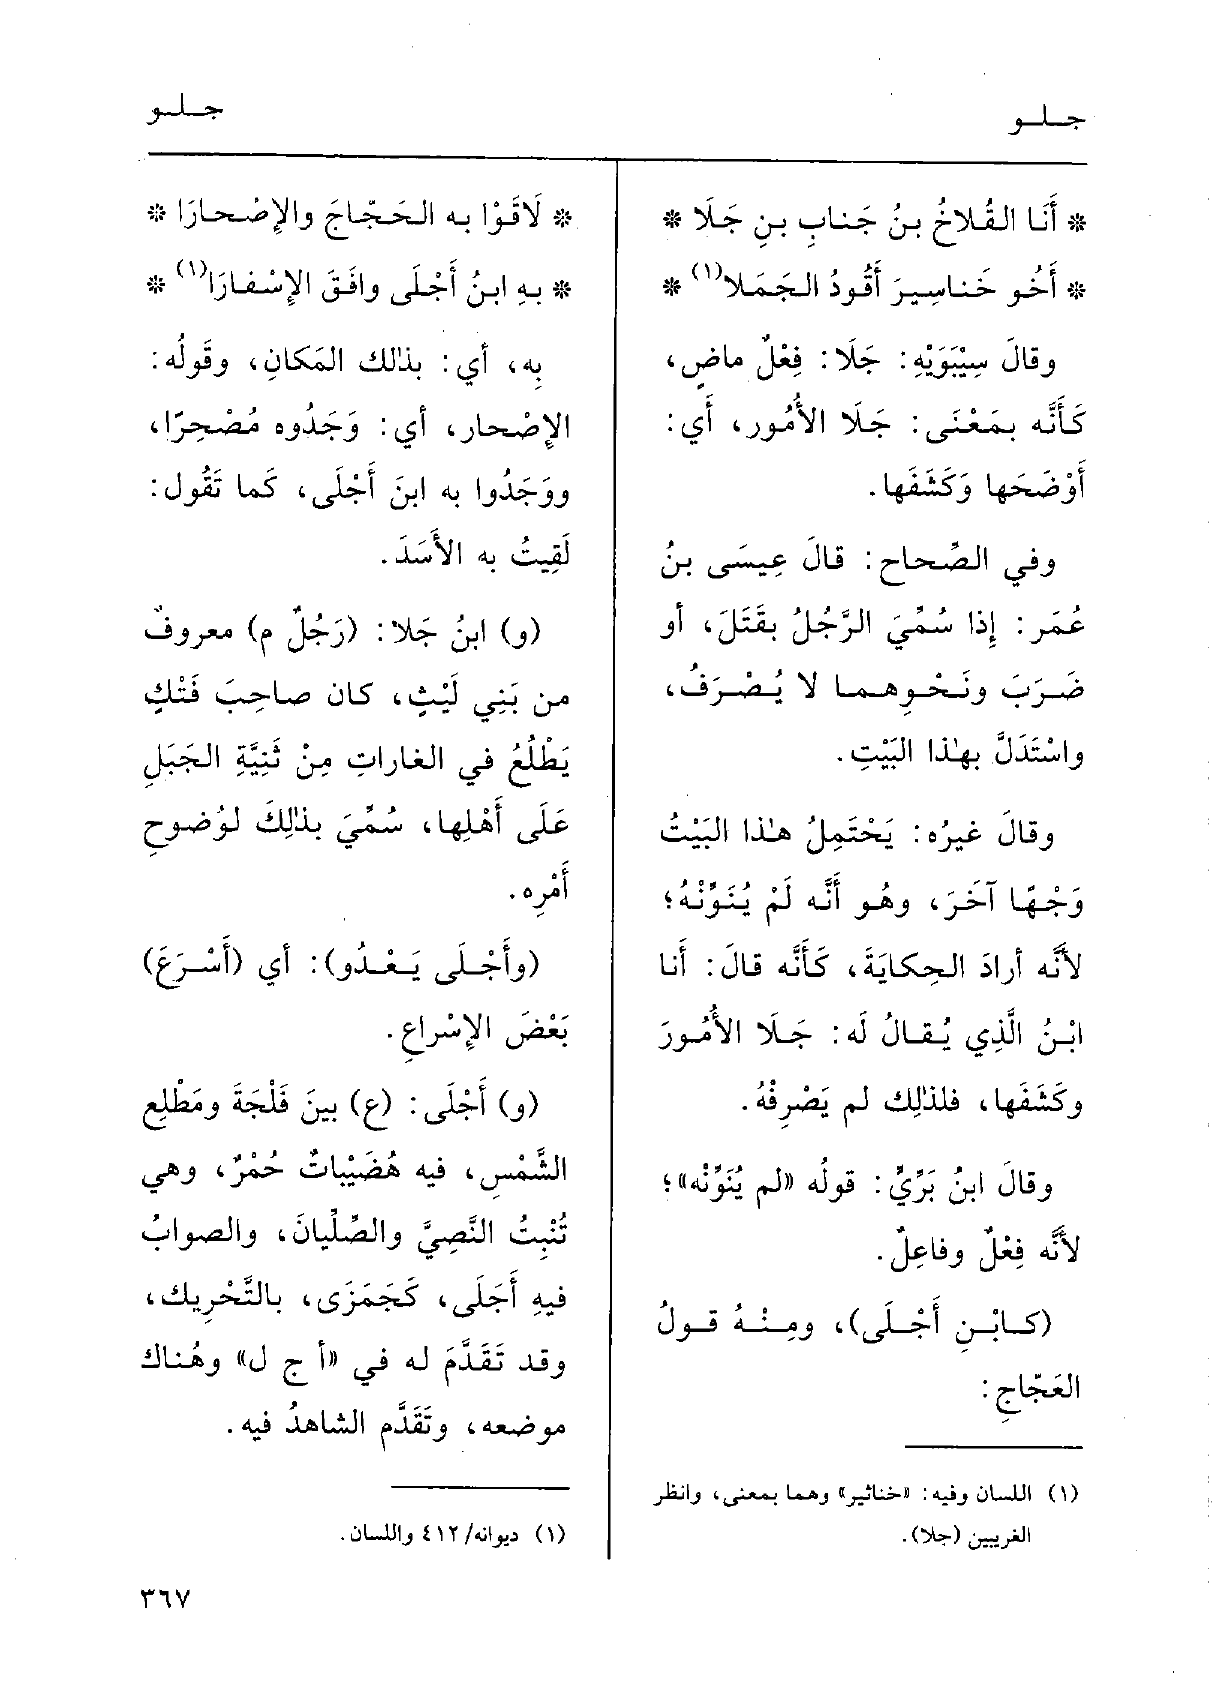 جلو
جلو
* أَنَا القُلاخُ بنُ جَنابِ بنِ جَلَا *
* أَخُو خَناسِيرَ أَقُودُ الجَمَلا(١) *
وقالَ سِيْبَوَيْهِ: جَلَا: فِعْلٌ ماضٍ،
كَأَنَّه بمَعْنَى: جَلَا الأُمُور، أَي:
أَوْضَحَها وَكَشَفَها.
وفي الصِّحاح: قالَ عِيسَى بنُ
عُمَر: إِذا سُمِّيَ الرَّجُلُ بقَتَلَ، أو
ضَرَبَ ونَحْوِهما لا يُصْرَفُ،
واسْتَدَلَّ بهٰذا البَيْتِ.
وقالَ غيرُه: يَحْتَمِلُ هٰذا البَيْتُ
وَجْهًا آخَرَ، وهُو أَنَّه لَمْ يُنَوِّنْهُ؛
لأَنَّه أرادَ الحِكايَةَ، كَأَنَّه قالَ: أَنا
ابْنُ الَّذِي يُقالُ لَه: جَلَا الأُمُورَ
وكَشَفَها، فلذٰلِك لم يَصْرِفْهُ.
وقالَ ابنُ بَرِّيٍّ: قولُه «لم يُنَوِّنْه»؛
لأَنَّه فِعْلٌ وفاعِلٌ.
(كابْنِ أَجْلَى)، ومِنْهُ قولُ
العَجّاجِ:
(١) اللسان وفيه: «خناثير» وهما بمعنى، وانظر
الغريبين (جلا).
* لَاقَوْا به الحَجّاجَ والإِصْحارَا *
* بهِ ابنُ أَجْلَى وافَقَ الإِسْفارَا(١) *
بِه، أي: بذٰلك المَكانِ، وقَولُه:
الإِصْحار، أي: وَجَدُوه مُصْحِرًا،
ووَجَدُوا به ابنَ أَجْلَى، كَما تَقُول:
لَقِيتُ به الأَسَدَ.
(و) ابنُ جَلا: (رَجُلٌ م) معروفٌ
من بَنِي لَيْثٍ، كان صاحِبَ فَتْكٍ
يَطْلُعُ في الغاراتِ مِنْ ثَنِيَّةِ الجَبَلِ
عَلَى أَهْلِها، سُمِّيَ بذٰلِكَ لوُضوحِ
أَمْرِه.
(وأَجْلَى يَعْدُو): أي (أَسْرَعَ)
بَعْضَ الإِسْراعِ.
(و) أَجْلَى: (ع) بينَ فَلْجَةَ ومَطْلِعِ
الشَّمْسِ، فيه هُضَيْباتٌ حُمْرٌ، وهي
تُنْبِتُ النَّصِيَّ والصِّلِّيانَ، والصوابُ
فيهِ أَجَلَى، كَجَمَزَى، بالتَّحْرِيك،
وقد تَقَدَّمَ له في «أ ج ل» وهُناك
موضعه، وتَقَدَّم الشاهدُ فيه.
(١) ديوانه/٤١٢ واللسان.
٣٦٧